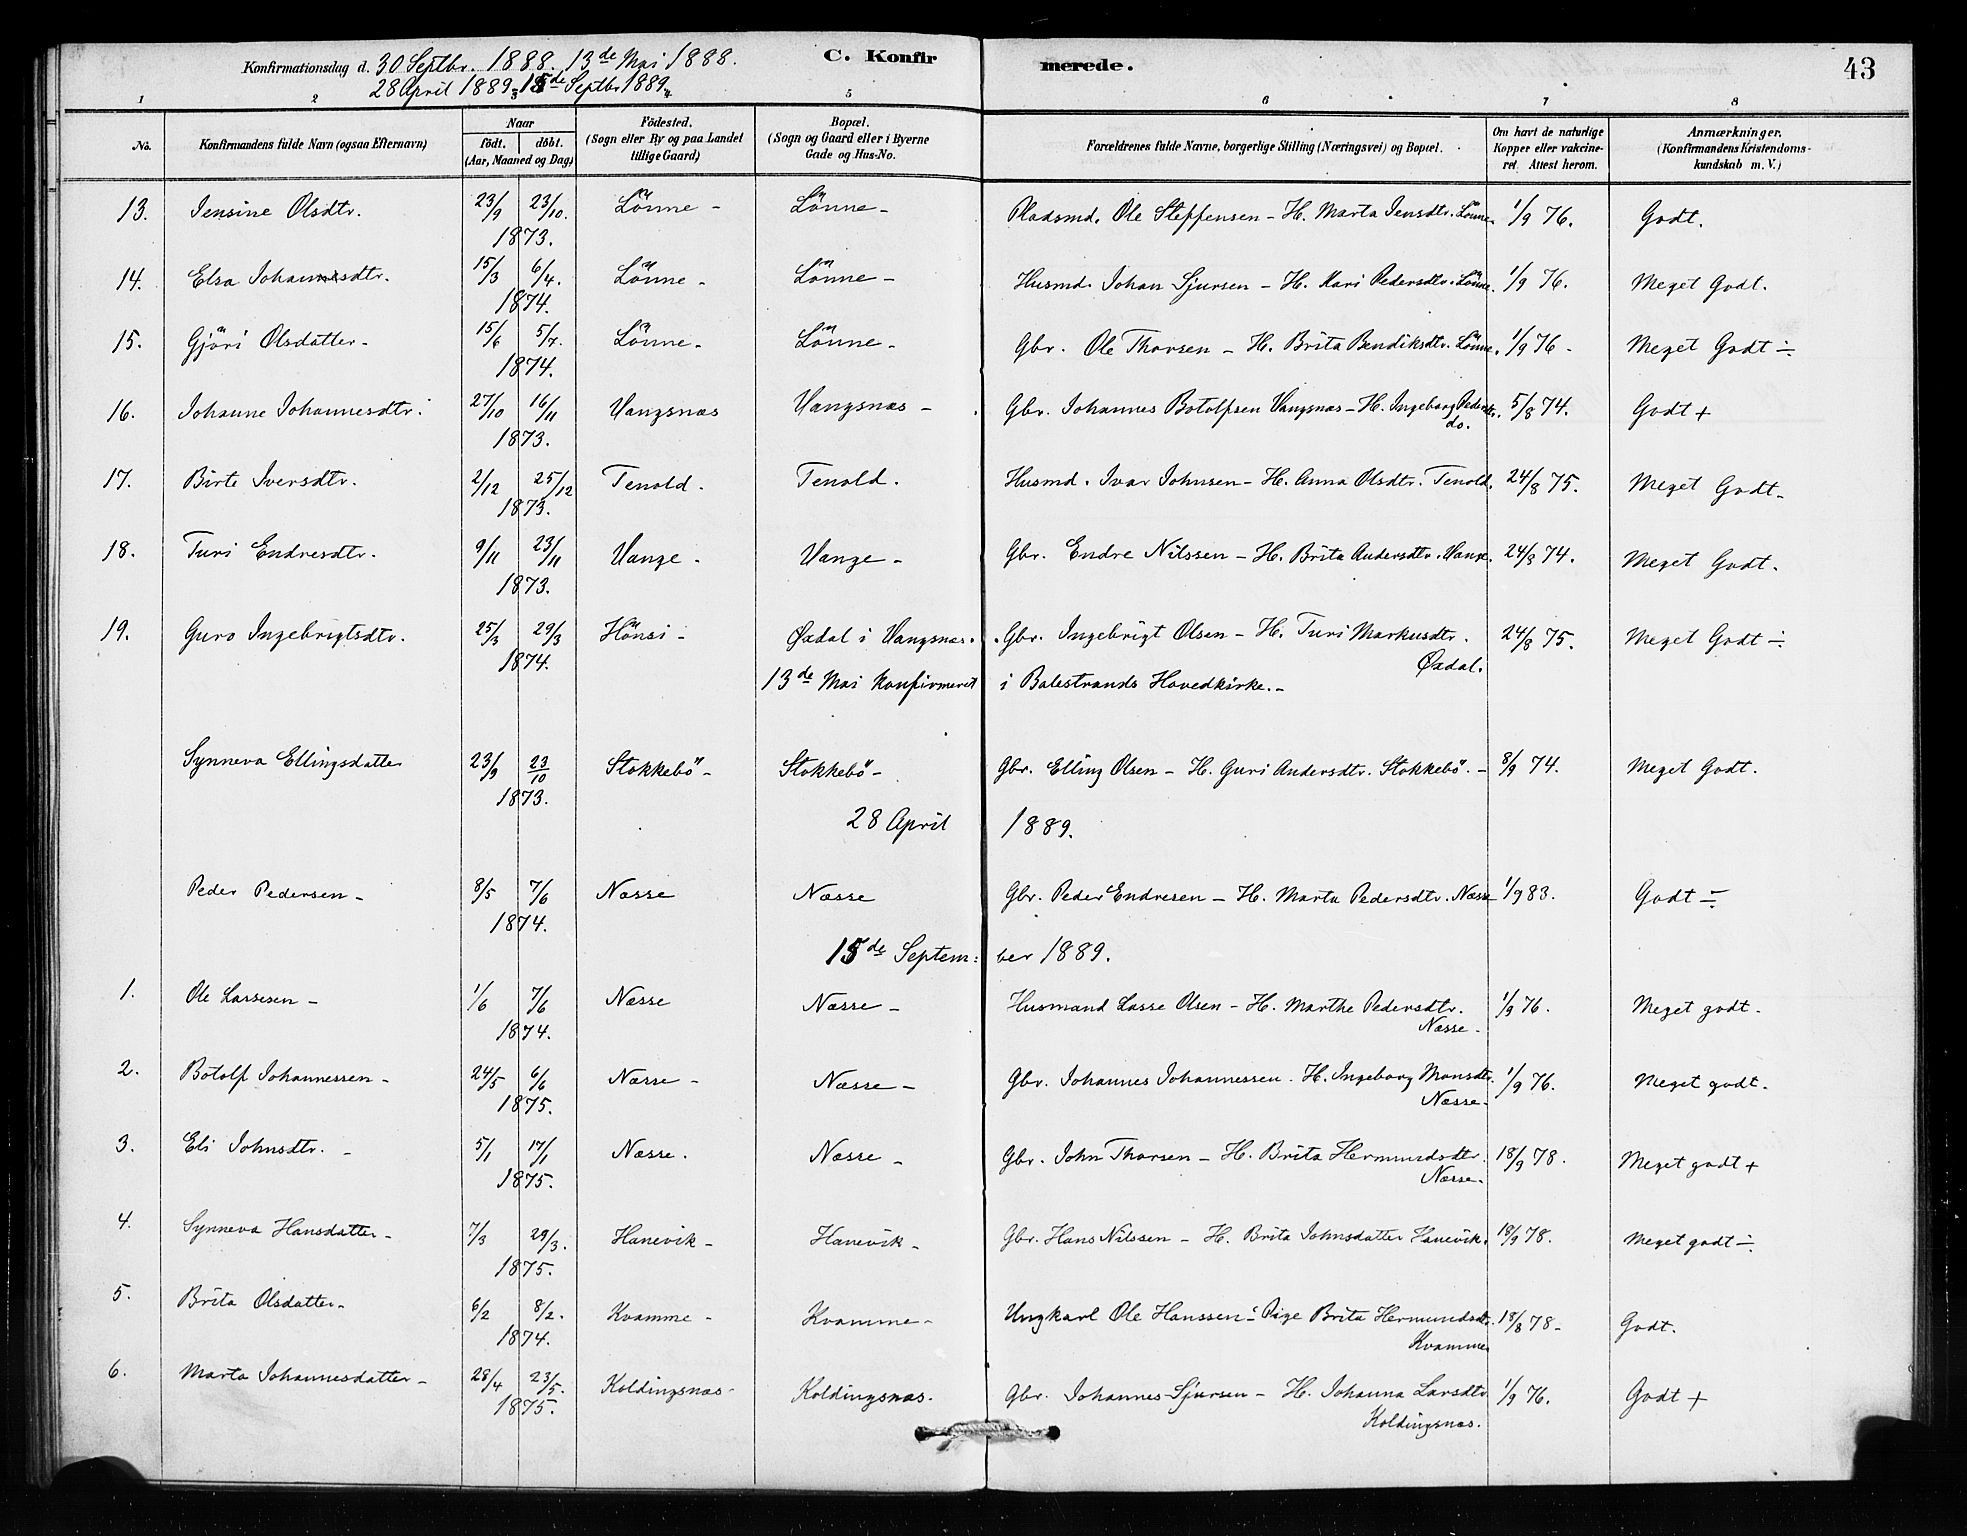 Konfirmationsdag d. 30 Septbr. 1888. 13de Mai 1888. C. Konfirmerede. 43
28 April 1889. 15de Septbr 1889.
1 2 3 4 5 6 7 8
No. Konfirmandens fulde Navn (ogsaa Efternavn) Naar födt. döbt. (Aar, Maaned og Dag) Födested. (Sogn eller By og paa Landet tillige Gaard) Bopæl. (Sogn og Gaard eller i Byerne Gade og Hus-No. Forældrenes fulde Navne, borgerlige Stilling (Næringsvei) og Bopæl. Om havt de naturlige Kopper eller vakcineret. Attest herom. Anmærkninger. (Konfirmandens Kristendomskundskab m. V.)
13. Jensine Olsdtr. 23/9 23/10. 1873. Lönne - Lönne - Pladsmd. Ole Steffensen - H. Marta Jensdtr. Lönne. 1/9 76. Godt.
14. Elsa Johannesdtr. 15/3 6/4. 1874. Lönne - Lönne - Husmd. Johan Sjursen - H. Kari Pedersdtr. Lönne. 1/9 76. Meget Godt.
15. Gjöri Olsdatter - 15/6 5/7. 1874. Lönne - Lönne - Gbr. Ole Thorsen - H. Brita Bendiksdtr. Lönne. 1/9 76 - Meget Godt ÷
16. Johanne Johannesdtr. 27/10 16/11 1873. Vangsnæs Vangsnæs - Gbr. Johannes Botolfsen Vangsnæs - H. Ingeborg Pedersdtr. do. 5/8 74. Godt +
17. Birte Iversdtr. 2/12 25/12 1873. Tenold. Tenold. Husmd. Ivar Johnsen - H. Anna Olsdtr. Tenold. 24/8 75. Meget Godt -
18. Turi Endresdtr. 9/11 23/11 1873. Vange - Vange - Gbr. Endre Nilssen - H. Brita Andersdtr. Vange. 24/8 74. Meget Godt.
19. Guro Ingebrigtsdtr. 25/3 29/3 1874. Hönsi - Øxdal i Vangsnæs. Gbr. Ingebrigt Olsen - H. Turi Markusdtr. Øxdal. 24/8 75. Meget Godt ÷
13de Mai konfirmeret i Balestrands Hovedkirke. -
Synneva Ellingsdatter 23/9 23/10 1873. Stokkebö - Stokkebö - Gbr. Elling Olsen - H. Guri Andersdtr. Stokkebö. - 8/9 74. Meget Godt.
28 April 1889.
Peder Pedersen - 8/5 7/6 1874. Næsse Næsse Gbr. Peder Endresen - H. Marta Pedersdtr. Næsse 1/9 83. Godt ÷
15de September 1889.
1. Ole Lassesen - 1/6 7/6 1874. Næsse Næsse - Husmand Lasse Olsen - H. Marthe Pedersdtr. Næsse - 1/9 76. Meget godt -
2. Botolf Johannessen - 24/5 6/6 1875. Næsse - Næsse - Gbr. Johannes Johannessen. H. Ingeborg Monsdtr. Næsse - 1/9 76. Meget godt -
3. Eli Johnsdtr. - 5/1 17/1 1875. Næsse. Næsse - Gbr. John Thorsen - H. Brita Hermundsdtr. Næsse - 18/9 78. Meget godt +
4. Synneva Hansdatter - 7/3 29/3. 1875. Hanevik - Hanevik - Gbr. Hans Nilssen - H. Brita Johnsdatter Hanevik. 18/9 78. Meget godt ÷
5. Brita Olsdatter - 6/2 8/2. 1874. Kvamme - Kvamme - Ungkarl Ole Hanssen - Pige Brita Hermundsdtr. Kvamme 18/8 78 - Godt.
6. Marta Johannesdatter - 28/4 23/5. 1875. Koldingsnæs - Koldingsnæs. Gbr. Johannes Sjursen - H. Johanna Larsdtr Koldingsnæs. 1/9 76. Godt +